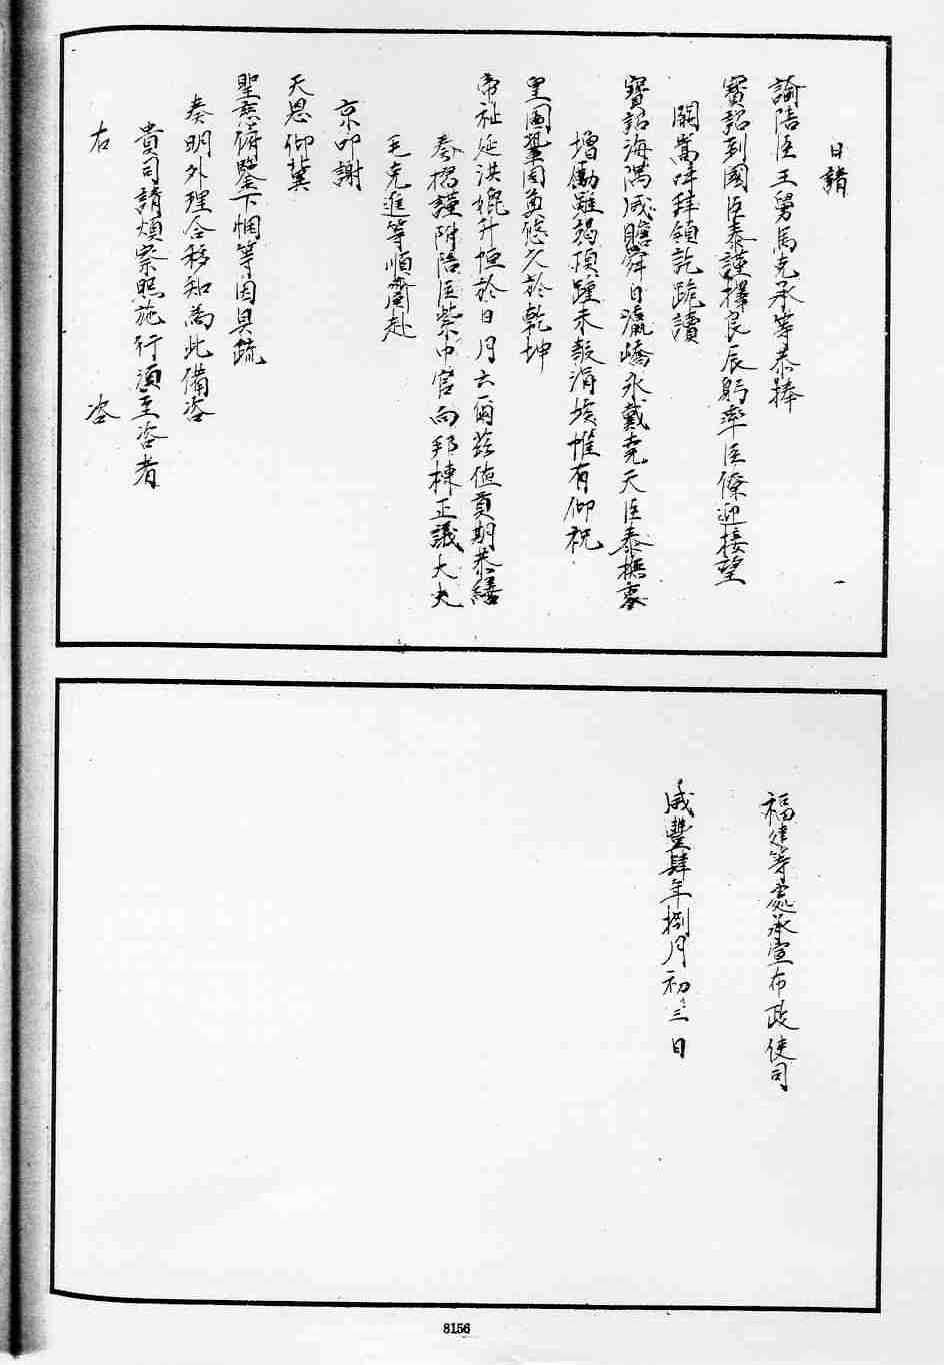 日諸
諭陪臣王舅馬克承等恭捧
寶詔到國臣泰謹擇良辰躬率臣僚迎接望
闕嵩呼拜領訖跪讀
寶詔海隅咸瞻舜日瀛嶠永戴堯天臣泰撫衷
增勵雖竭頂踵未報涓埃惟有仰祝
皇圖鞏固奠悠久於乾坤
帝祉延洪媲升恒於日月云爾茲值貢期恭繕
奏楮謹附陪臣紫巾官向邦棟正議大夫
毛克進等順齎赴
京叩謝
天恩仰冀
聖慈俯鑒下悃等因具疏
奏明外理合移知為此備咨
貴司請煩察照施行須至咨者
右 咨
福建等處承宣布政使司
咸豐肆年捌月初三日
8156